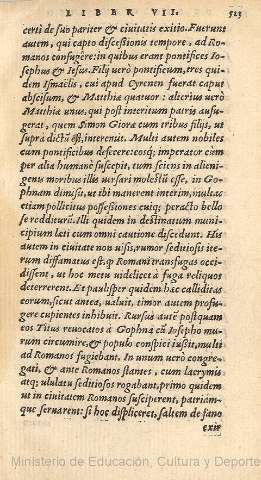 LIBER VII. 523
certi de suo pariter & ciuitatis exitio. Fuerunt
autem, qui capto discessionis tempore, ad Ro-
manos confugere: in quibus erant pontifices Io-
sephus & Iesus. Filij uerò pontificum, tres qui-
dem Ismaëlis, cui apud Cyrenen fuerat caput
abscisum, & Matthiæ quatuor: alterius uerò
Matthiæ unus, qui post interitum patris aufu-
gerat, quem Simon Gioræ cum tribus filijs, ut
suprà dictū est, interemit. Multi autem nobiles
cum pontificibus descire: eosq; imperator cùm
per alia humanè suscepit, tum sciens in alieni-
genis moribus illis uersari molestū esse, in Go-
phnam dimisit, ut ibi manerent interim, multa
etiam pollicitus possessiones cuiq; peracto bello
se redditurū. Alij quidem in destinatum muni-
cipium læti cum omni cautione discedunt. His
autem in ciuitate non uisis, rumor seditiosis ite-
rum diffamatus est, q Romani transfugas occi-
dissent, ut hoc metu uidelicet à fuga reliquos
deterrerent. Et paulisper quidem hæc calliditas
eorum, sicut antea, ualuit, timor autem profu-
gere cupientes inhibuit. Rursus autē postquam
eos Titus reuocatos à Gophna cū Iosepho mu-
rum circumire, & populo conspici iussit, multi
ad Romanos fugiebant. In unum uerò congre-
gati, & ante Romanos stantes, cum lacrymis
atq; ululatu seditiosos rogabant, primò quidem
ut in ciuitatem Romanos susciperent, patriam-
que seruarent: si hoc displiceret, saltem de fano
exir
Ministerio de Educación, Cultura y Deporte